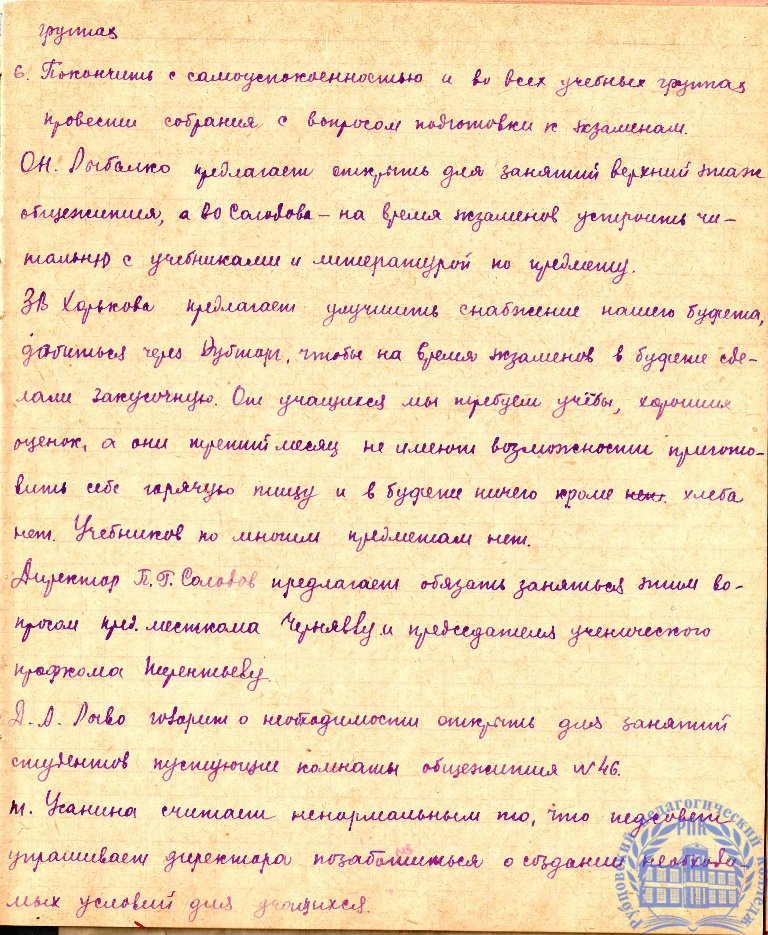 группах
6. Покончить с самоуспокоенностью и во всех учебных группах
провести собрания с вопросом подготовки к экзаменам.
О.Н. Рыбалко предлагает открыть для занятий верхний этаж
общежития, а ВО Солодова – на время экзаменов устроить чи-
тальню с учебниками и литературой по предмету.
ЗВ Хорькова предлагает улучшить снабжение нашего буфета,
добиться через Рубторг, чтобы на время экзаменов в буфете сде-
лали закусочную. От учащихся мы требуем учёбы, хороших
оценок, а они третий месяц не имеют возможности пригото-
вить себе горячую пищу и в буфете ничего кроме нет. хлеба
нет. Учебников по многим предметам нет.
Директор П.Г. Солодов предлагает обязать заняться этим во-
просом пред. месткома и председателя ученического
профкома Терентьеву.
говорит о необходимости открыть для занятий
студентов пустующие комнаты общежития №46.
т. Усанина считает ненормальным то, что педсовет
упрашивает директора позаботиться о создании необходи-
мых условий для учащихся.
Рубцовский педагогический колледж
РПК